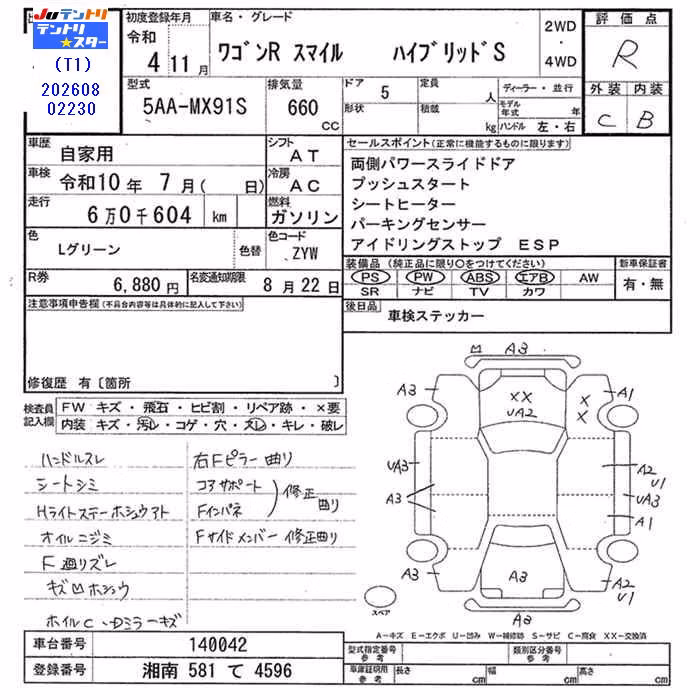 Juテントリ
テントリ★スター
(T1)
202608
02230
初度登録年月
令和
4 11月
車名・グレード
ワゴンR スマイル ハイブリッドS
2WD
・
4WD
評価点
R
型式
5AA-MX91S
排気量
660
CC
ドア
5
形状
定員
人
積載
kg
ディーラー・並行
モデル年式
年
ハンドル 左・右
外装 内装
C B
車歴
自家用
車検
令和10年 7月( 日)
走行
6万0千604 km
シフト
AT
冷房
AC
燃料
ガソリン
色
Lグリーン
色替
色コード
ZYW
R券
6,880円
名変通知期限
8月22日
セールスポイント(正常に機能するものに限ります)
両側パワースライドドア
プッシュスタート
シートヒーター
パーキングセンサー
アイドリングストップ ESP
装備品(純正品に限り○をつけてください)
PS PW ABS エアB AW
SR ナビ TV カワ
新車保証書
有・無
後日品
車検ステッカー
注意事項申告欄(不具合内容等は具体的に記入して下さい)
修復歴 有〔箇所 〕
検査員記入欄
FW キズ・飛石・ヒビ割・リペア跡・×要
内装 キズ・汚レ・コゲ・穴・スレ・キレ・破レ
ハンドルスレ
シートシミ
Hライトステーホシュウアト
オイルニジミ
F廻リズレ
キズ凹ホシュウ
ホイルC・Dミラーキズ
右Fピラー曲り
コアサポート
Fインパネ
修正曲り
Fサイドメンバー修正曲り
凹 A3
A3
XX
UA2
X
X
A1
UA3
A3
A2
U1
UA3
A1
A3
A3
A2
U1
A3
スペア
A-キズ E-エクボ U-凹み W-補修跡 S-サビ C-腐食 XX-交換済
車台番号
140042
登録番号
湘南 581 て 4596
型式指定番号
参考
類別区分番号
参考
車庫証明用
参考
長さ
cm
幅
cm
高さ
cm